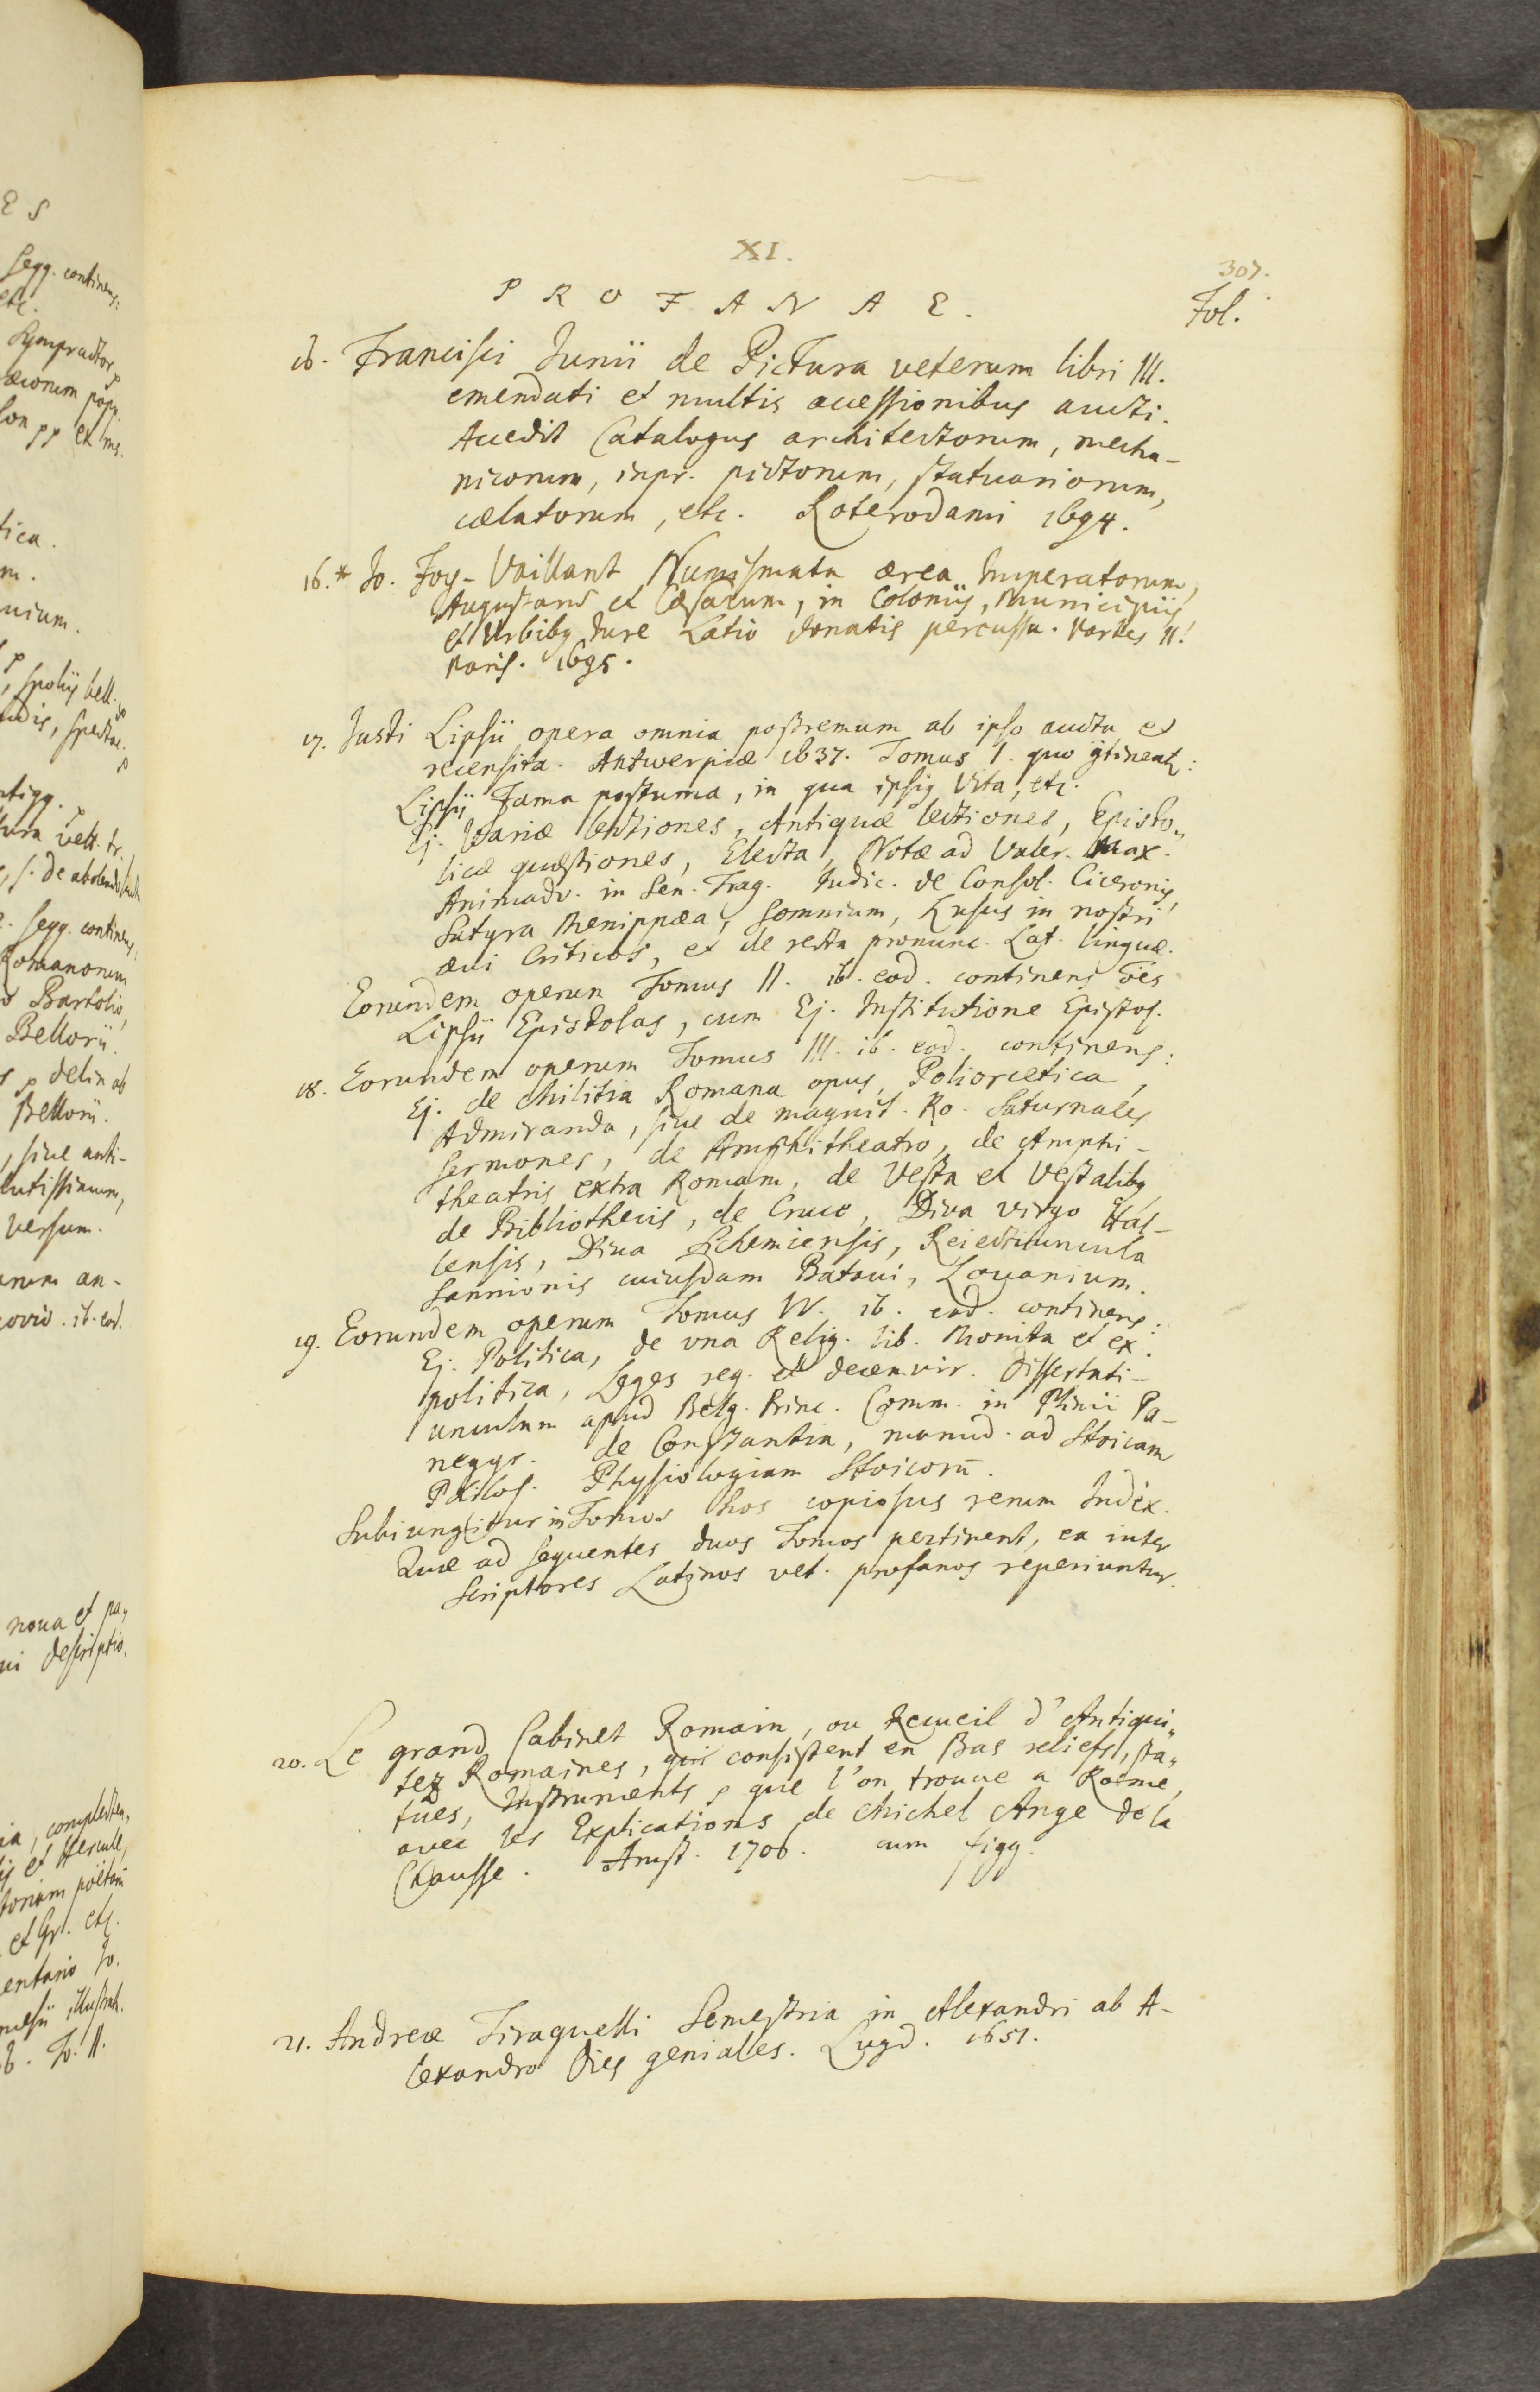 XI.
307.
P R O F A N A E.
Fol.
16. Francisci Junii de Pictura veterum libri III.
emendati et multis accessionibus aucti.
Accedit Catalogus architectorum, mecha-
nicorum, inpr. pictorum, statuariorum,
cælatorum, etc. Roterodami 1694.
16.* Jo. Foy-Vaillant Numismata ærea Imperatorum,
Augustarū et Cæsarum, in Coloniis, Municipiis
et Urbibq Jure Latio donatis percussa. Partes II.
Paris. 1695.
17. Justi Lipsii opera omnia postremum ab ipso aucta et
recensita. Antwerpiæ 1637. Tomus I. quo
Lipsii Fama postuma, in qua ipsiq Vita, etc.
Ej. Variæ lectiones, Antiquæ lectiones, Episto„
licæ quæstiones, Electa, Notæ ad Valer. Max.
Animadv. in Sen. Trag. Judic. de Consol. Ciceronis,
Satyra Menippæa, Somnium, Lusus in nostri
ævi Criticos, et de recta pronunc. Lat. linguæ.
Eorundem operum Tomus II. ib. eod. continens oēs
Lipsii Epistolas, cum Ej. Institutione Epistol.
18. Eorundem operum Tomus III. ib. eod. continens:
Ej. de Militia Romana opus, Poliorcetica,
Admiranda, sive de magnit. Ro. Saturnales
sermones, de Amphitheatro, de Amphi-
theatris extra Romam, de Vesta et Vestalibq
de Bibliothecis, de Cruce, Diva virgo Hal-
lensis, Diva Sichemiensis, Reiectiuncula
Sannionis cuiusdam Batavi, Lovanium.
19. Eorundem operum Tomus IV. ib. eod. continens:
Ej. Politica, de una Relig. lib. Monita et ex.
politica, Leges reg. et decemvir. Dissertati-
unculam apud Belg. Princ. Comm. in Plinii Pa-
negyr. de Constantia, manud. ad Stoicam
Philos. Physiologiam Stoicorū.
Subiungitur in Tomos hos copiosus rerum Index.
Quæ ad sequentes duos Tomos pertinent, ea inter
Scriptores Latinos vet. profanos reperiuntur.
20. Le grand Cabinet Romain, ou Recueil d'Antiqui„
tez Romaines, qui consistent en Bas reliefs, sta„
tües, Instruments p que l'on trouve a Roeme,
avec les Explications de Michel Ange de la
Chausse. Amst. 1706. cum figg.
21. Andreæ Tiraquelli Semestria in Alexandri ab A-
lexandro Dies geniales. Lugd. 1651.